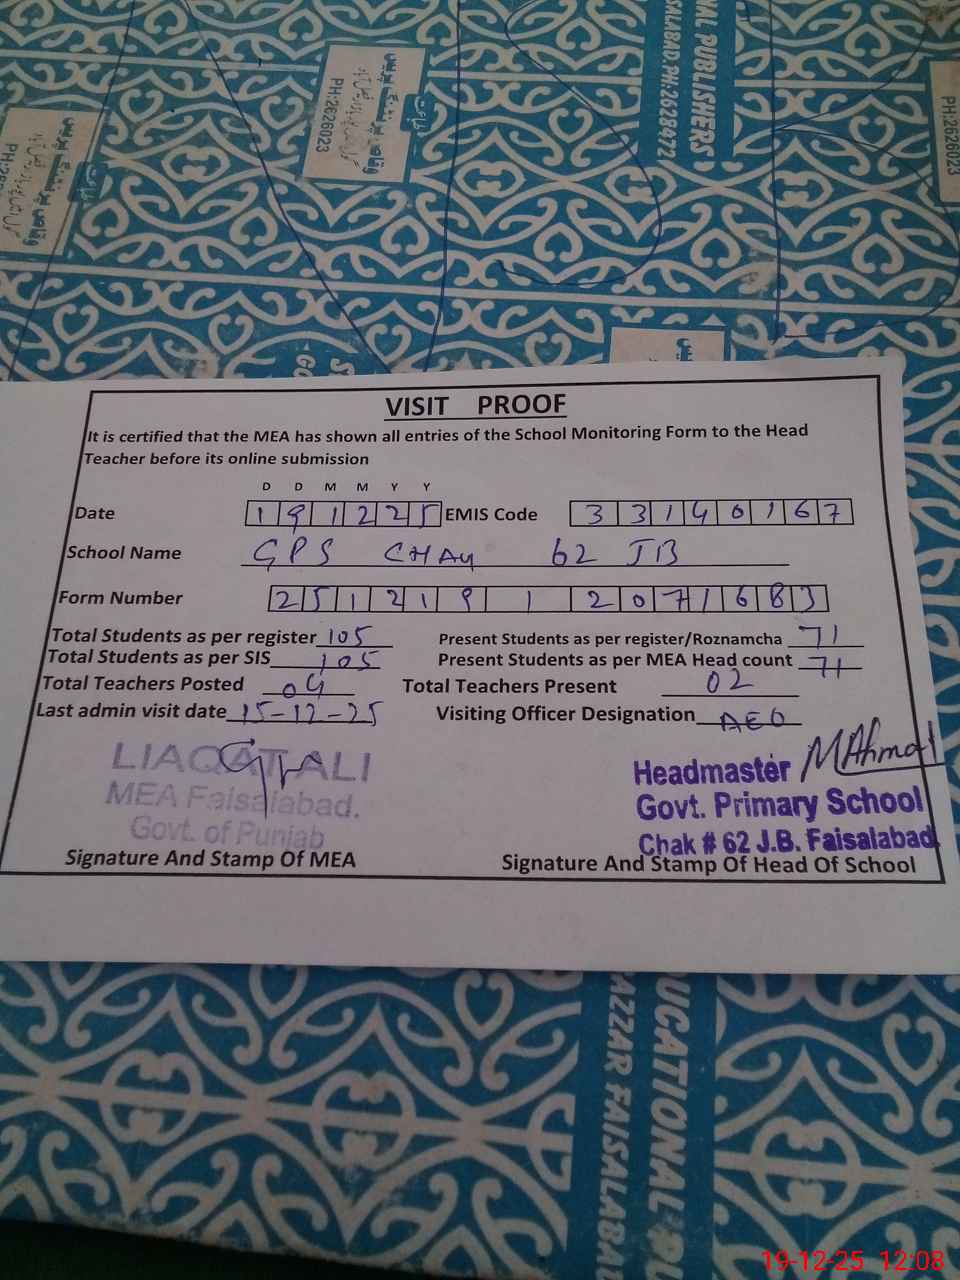 PH:2626023
NAL PUBLISHERS
SALABAD.PH:2628472
PH:2626023
VISIT PROOF
It is certified that the MEA has shown all entries of the School Monitoring Form to the Head
Teacher before its online submission
D D M M Y Y
Date 191225 EMIS Code 33140167
School Name GPS CHAK 62 JB
Form Number 251219 1 2071683
Total Students as per register 105 Present Students as per register/Roznamcha 71
Total Students as per SIS 105 Present Students as per MEA Head count 71
Total Teachers Posted 04 Total Teachers Present 02
Last admin visit date 15-12-25 Visiting Officer Designation AEO
LIAQAT ALI
MEA Faisalabad.
Govt. of Punjab
Signature And Stamp Of MEA
Headmaster MAhmad
Govt. Primary School
Chak # 62 J.B. Faisalabad
Signature And Stamp Of Head Of School
DUCATIONAL PU
AZZAR FAISALABA
19-12-25 12:08